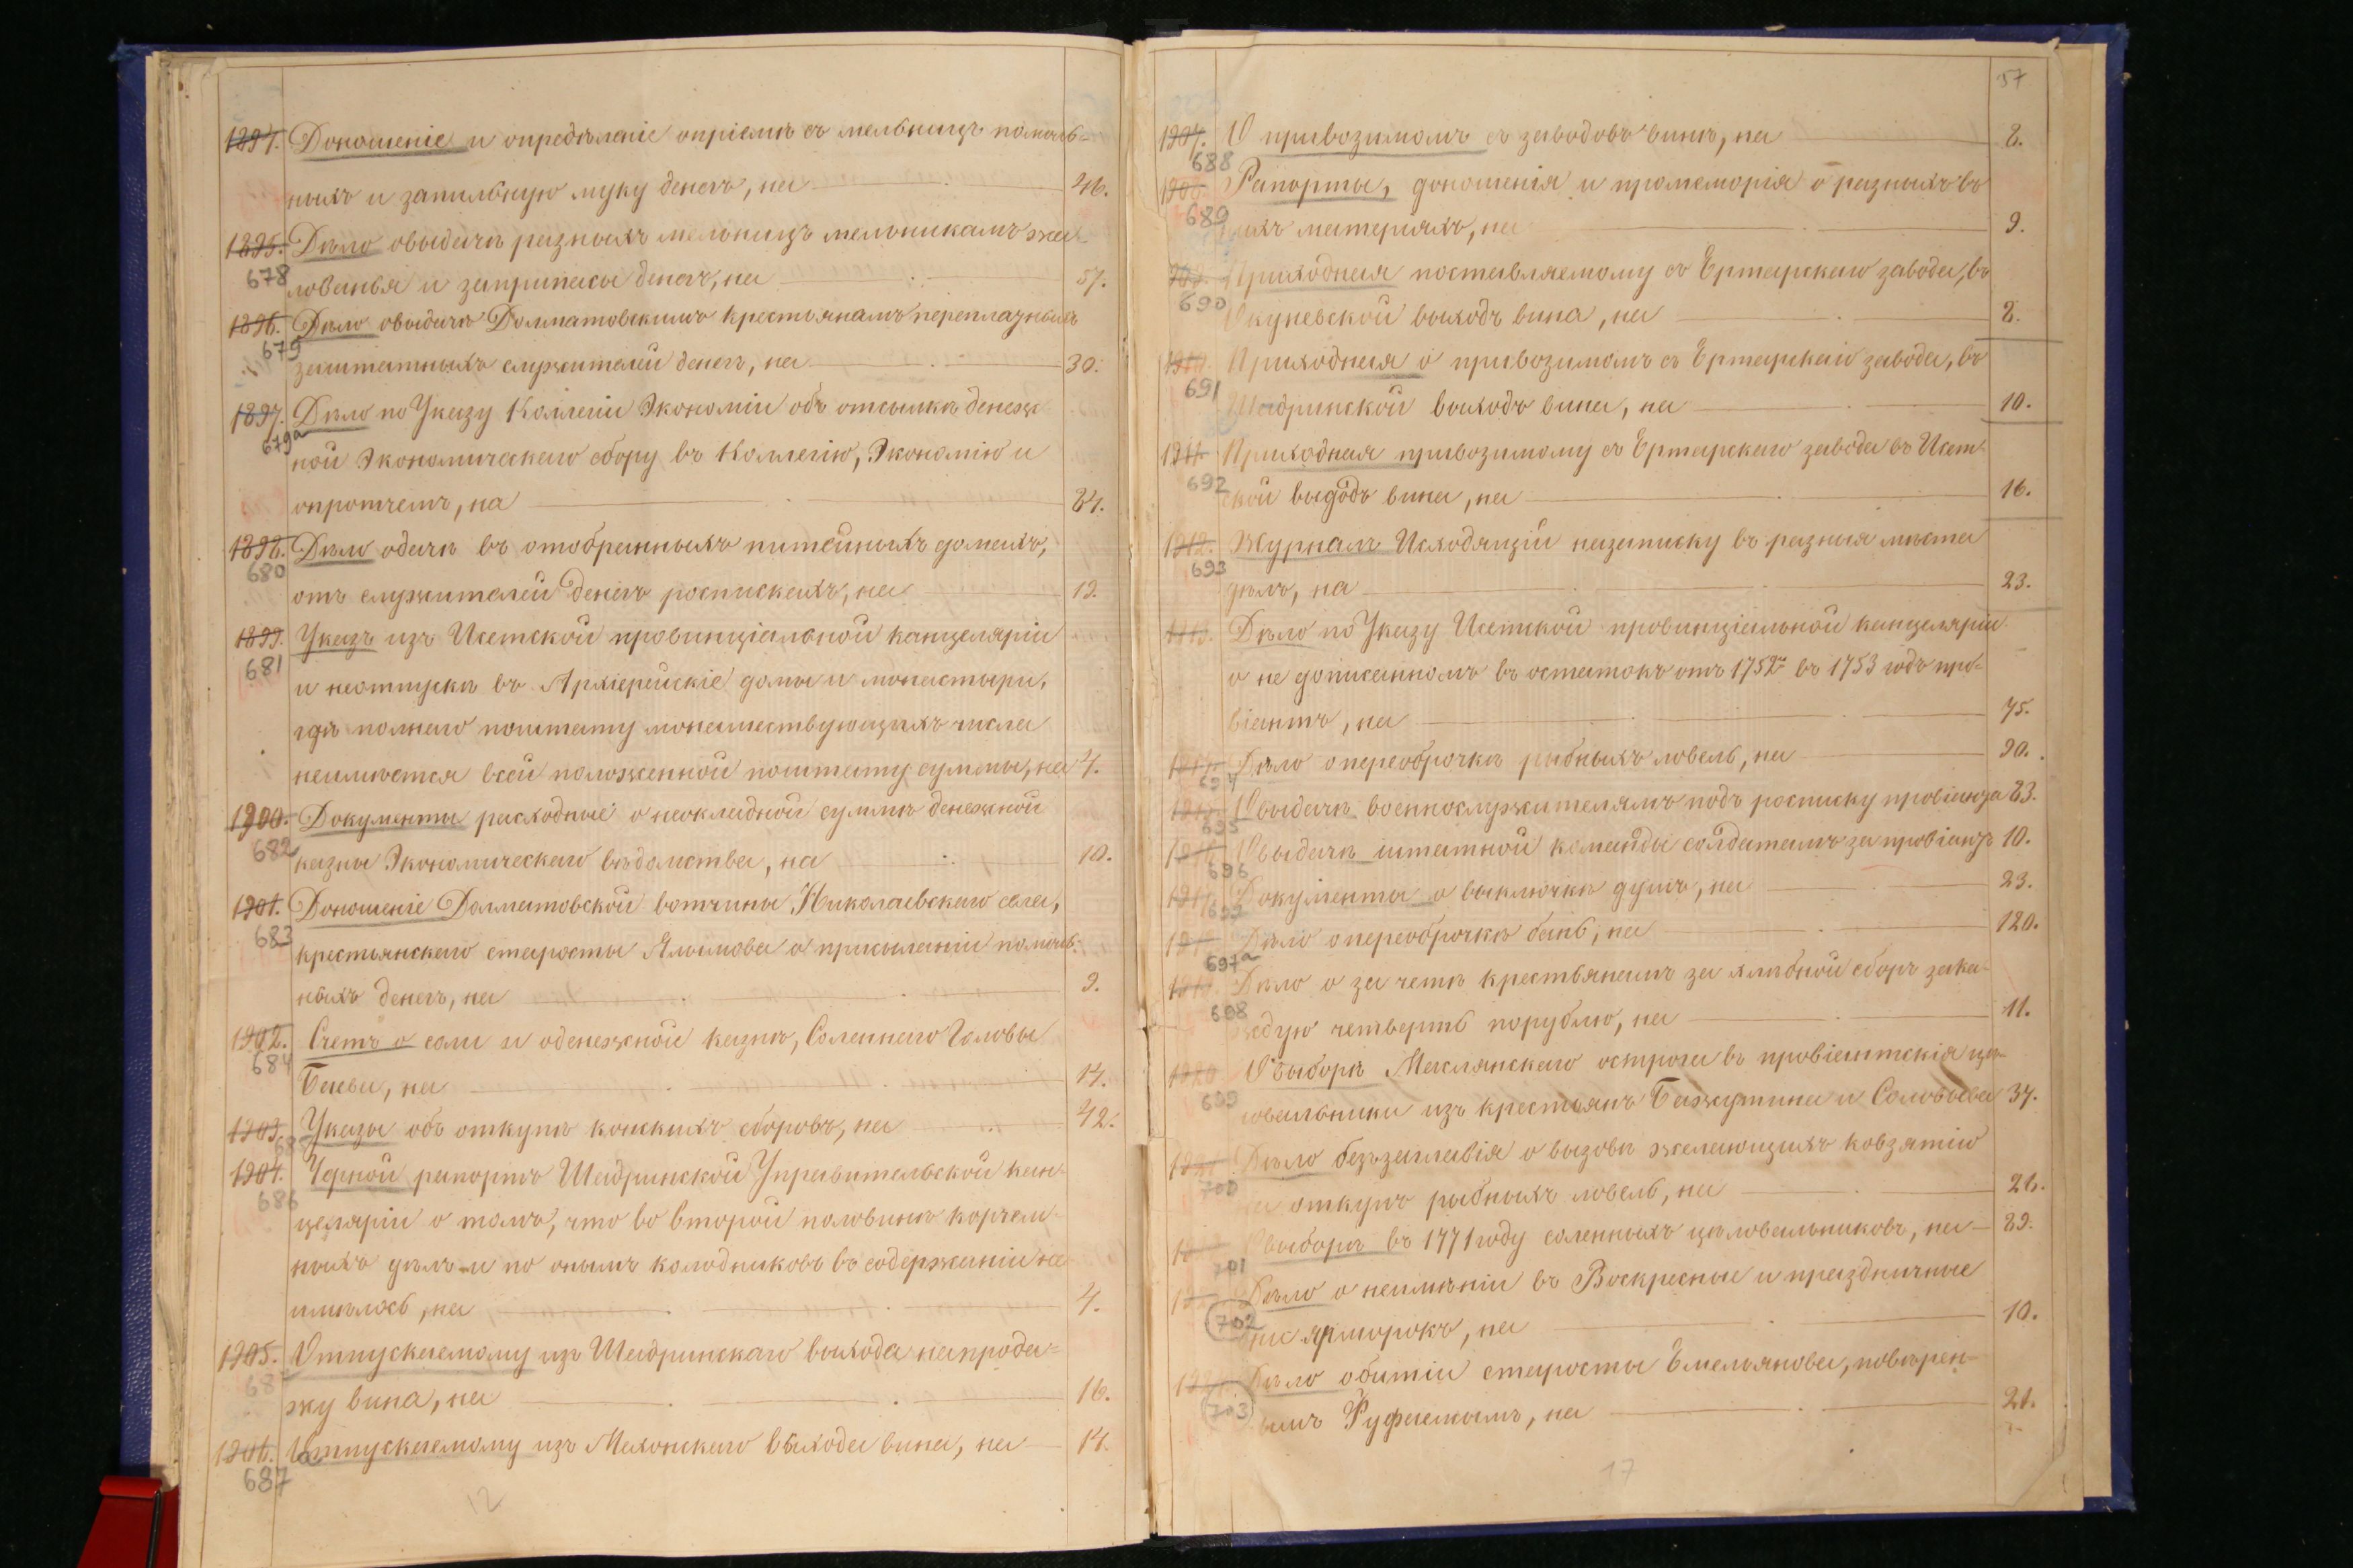 1894. Доношеніе и опредѣленіе опріемѣ съ мельницъ помоль-
ныхъ и запильную муку денегъ, на 46.
1895. Дѣло овыдачѣ разныхъ мельницъ мельникамъ жа-
678 лованья и заприпасы денегъ, на 57.
1896. Дѣло овыдачѣ Долматовскимъ крестьянамъ переплазныхъ
679 заштатныхъ служителей денегъ, на 30.
1897. Дѣло по Указу Коллегіи Экономіи объ отсылкѣ денеж-
679а ной Экономическаго сбору въ Коллегію, Экономію и
опротчемъ, на 84.
1898. Дѣло одачѣ въ отобранныхъ питейныхъ домахъ,
680 отъ служителей денегъ роспискахъ, на 19.
1899. Указъ изъ Исетской провинціальной канцеляріи
681 и неотпускѣ въ Архіерейскіе домы и монастыри,
гдѣ полнаго поштату монашествующихъ числа
неимѣется всей положенной поштату суммы, на 4.
1900. Документы расходные о неокладной суммѣ денежной
682 казны Экономическаго вѣдомства, на 10.
1901. Доношеніе Долматовской вотчины Николаевскаго села,
683 крестьянскаго старосты Ялымова о присыланіи помоль-
ныхъ денегъ, на 9.
1902. Счетъ о соли и оденежной казнѣ, Соленнаго Головы
684 Баева, на 14.
1903. Указы объ откупѣ конскихъ сборовъ, на 42.
1904. Черной рапортъ Шадринской Управительской кан-
686 целяріи о томъ, что во второй половинѣ корчем-
ныхъ дѣлъ и по онымъ колодниковъ въ содержаніи не
имѣлось, на 4.
1905. Отпускаемому изъ Шадринскаго выхода напрода-
жу вина, на 16.
1906. Отпускаемому изъ Мехонскаго выхода вина, на 14.
687
12
57
1907. О привозимомъ съ заводовъ винѣ, на 8.
688
Рапорты, доношенія и промеморія о разныхъ въ
689 ныхъ матеріяхъ, на 9.
Приходная поставляемому съ Ертарскаго завода, въ
690 Окуневской выходъ вина, на 8.
Приходная о привозимомъ съ Ертарскаго завода, въ
691 Шадринской выходъ вина, на 10.
1911. Приходная привозимому съ Ертарскаго завода въ Исет-
692 ской выходъ вина, на 16.
1912. Журналъ Исходящій назаписку въ разныя мѣста
693 дѣлъ, на 23.
1913. Дѣло по Указу Исетской провинціальной канцеляріи
о не дописанномъ въ остатокъ отъ 1752го въ 1753 годъ про-
віантѣ, на 75.
Дѣло опереоброчкѣ рыбныхъ ловель, на 90.
694
Овыдачѣ военнослужителямъ подъ росписку провіанта 83.
695
Овыдачѣ штатной команды солдатамъ за провіантъ 10.
696
Документы о выключкѣ душъ, на 23.
Дѣло опереоброчкѣ бань, на 120.
697а
Дѣло о за четѣ крестьянамъ за хлѣбной сборъ зака-
698 ждую четверть порублю, на 11.
Овыборѣ Маслянскаго острога въ провіантскія цѣ-
699 ловальники изъ крестьянъ Бажутина и Соловьева 37.
Дѣло безъзаглавія о вызовѣ желающихъ ковзятію
700 на откупъ рыбныхъ ловель, на 26.
Овыборѣ въ 1771 году соленныхъ цѣловальниковъ, на 89.
701
Дѣло о неимѣніи въ Воскресные и праздничные
702 дни ярморокъ, на 10.
Дѣло обитіи старосты Емельянова, повѣрен-
703 нымъ Руфаемымъ, на 21.
17